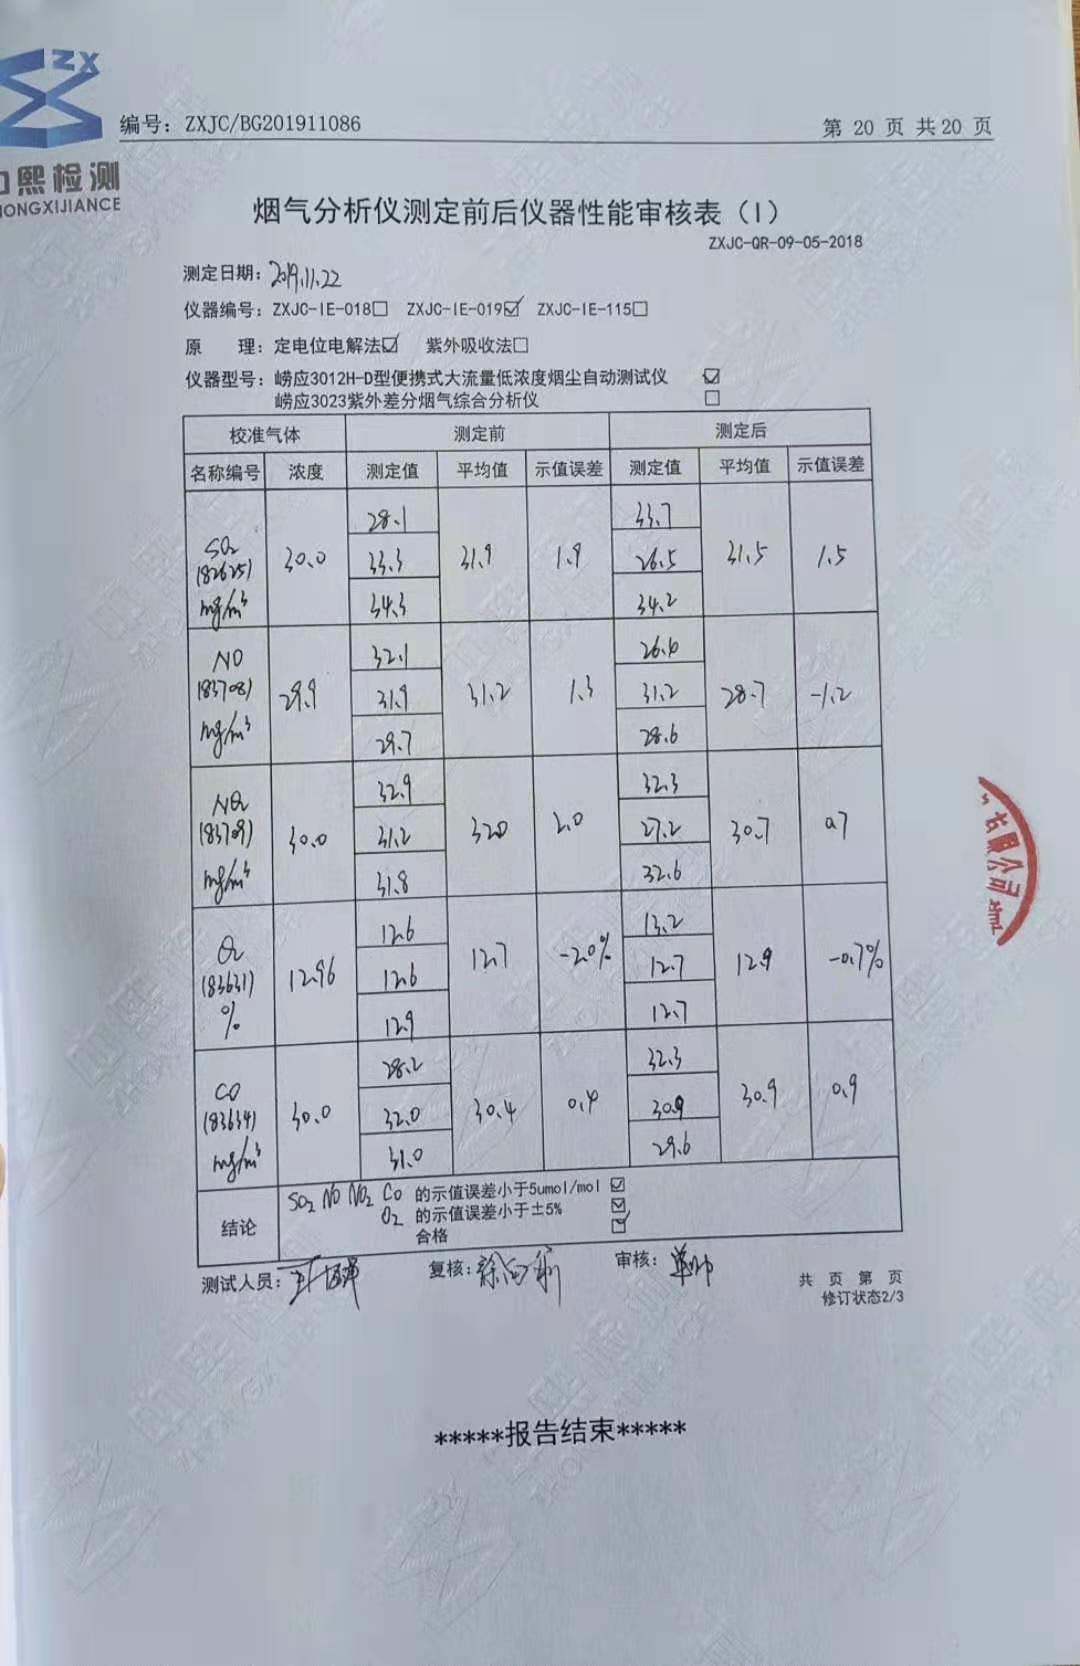 ZX
熙检测
HONGXIJIANCE
编号：ZXJC/BG201911086
第 20 页 共20 页
烟气分析仪测定前后仪器性能审核表（I）
ZXJC-QR-09-05-2018
测定日期：2019.11.22
仪器编号：ZXJC-IE-018□ ZXJC-IE-019☑ ZXJC-IE-115□
原 理：定电位电解法☑ 紫外吸收法□
仪器型号：崂应3012H-D型便携式大流量低浓度烟尘自动测试仪 ☑
崂应3023紫外差分烟气综合分析仪 □
校准气体 测定前 测定后
名称编号 浓度 测定值 平均值 示值误差 测定值 平均值 示值误差
28.1 33.7
SO₂ (82625) mg/m³ 30.0 33.3 31.9 1.9 26.5 31.5 1.5
34.3 34.2
32.1 26.4
NO (83708) mg/m³ 29.9 31.9 31.2 1.3 31.2 28.7 -1.2
29.7 28.6
32.9 32.3
NO₂ (83709) mg/m³ 30.0 31.2 32.0 2.0 27.2 30.7 0.7
31.8 32.6
12.6 13.2
O₂ (83631) % 12.96 12.6 12.7 -2.0% 12.7 12.9 -0.7%
12.9 12.7
28.2 32.3
CO (83634) mg/m³ 30.0 32.0 30.4 0.4 30.9 30.9 0.9
31.0 29.6
结论
SO₂ NO NO₂ CO 的示值误差小于5umol/mol ☑
O₂ 的示值误差小于±5% ☑
合格 ☑
测试人员： 复核： 审核：
共 页 第 页
修订状态2/3
限公司
章
*****报告结束*****